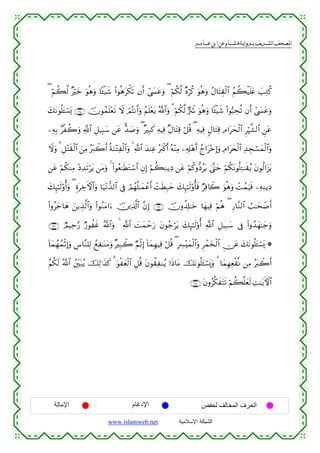 المصحف الشريف برواية هشام عن ابن عامر
كُتِبَ عَلَيْكُمُ الْقِتَالُ وَهُوَ كُرْهٌ لَّكُمْ ۖ وَعَسَىٰ أَن تَكْرَهُوا شَيْـًٔا وَهُوَ خَيْرٌ لَّكُمْ ۖ
وَعَسَىٰ أَن تُحِبُّوا شَيْـًٔا وَهُوَ شَرٌّ لَّكُمْ ۗ وَاللَّهُ يَعْلَمُ وَأَنتُمْ لَا تَعْلَمُونَ يَسْـَٔلُونَكَ
عَنِ الشَّهْرِ الْحَرَامِ قِتَالٍ فِيهِ ۖ قُلْ قِتَالٌ فِيهِ كَبِيرٌ ۖ وَصَدٌّ عَن سَبِيلِ اللَّهِ وَكُفْرٌ بِهِۦ
وَالْمَسْجِدِ الْحَرَامِ وَإِخْرَاجُ أَهْلِهِۦ مِنْهُ أَكْبَرُ عِندَ اللَّهِ ۚ وَالْفِتْنَةُ أَكْبَرُ مِنَ الْقَتْلِ ۗ وَلَا
يَزَالُونَ يُقَٰتِلُونَكُمْ حَتَّىٰ يَرُدُّوكُمْ عَن دِينِكُمْ إِنِ اسْتَطَٰعُوا ۚ وَمَن يَرْتَدِدْ مِنكُمْ عَن
دِينِهِۦ فَيَمُتْ وَهُوَ كَافِرٌ فَأُولَٰٓئِكَ حَبِطَتْ أَعْمَٰلُهُمْ فِي الدُّنْيَا وَالْءَاخِرَةِ ۖ وَأُولَٰٓئِكَ
أَصْحَٰبُ النَّارِ ۖ هُمْ فِيهَا خَٰلِدُونَ إِنَّ الَّذِينَ ءَامَنُوا وَالَّذِينَ هَاجَرُوا
وَجَٰهَدُوا فِي سَبِيلِ اللَّهِ أُولَٰٓئِكَ يَرْجُونَ رَحْمَتَ اللَّهِ ۚ وَاللَّهُ غَفُورٌ رَّحِيمٌ
۞ يَسْـَٔلُونَكَ عَنِ الْخَمْرِ وَالْمَيْسِرِ ۖ قُلْ فِيهِمَا إِثْمٌ كَبِيرٌ وَمَنَٰفِعُ لِلنَّاسِ وَإِثْمُهُمَا
أَكْبَرُ مِن نَّفْعِهِمَا ۗ وَيَسْـَٔلُونَكَ مَاذَا يُنفِقُونَ قُلِ الْعَفْوَ ۗ كَذَٰلِكَ يُبَيِّنُ اللَّهُ لَكُمُ
الْءَايَٰتِ لَعَلَّكُمْ تَتَفَكَّرُونَ
الحرف المخالف لحفص الإدغام الإمالة
الشبكة الإسلامية www.islamweb.net